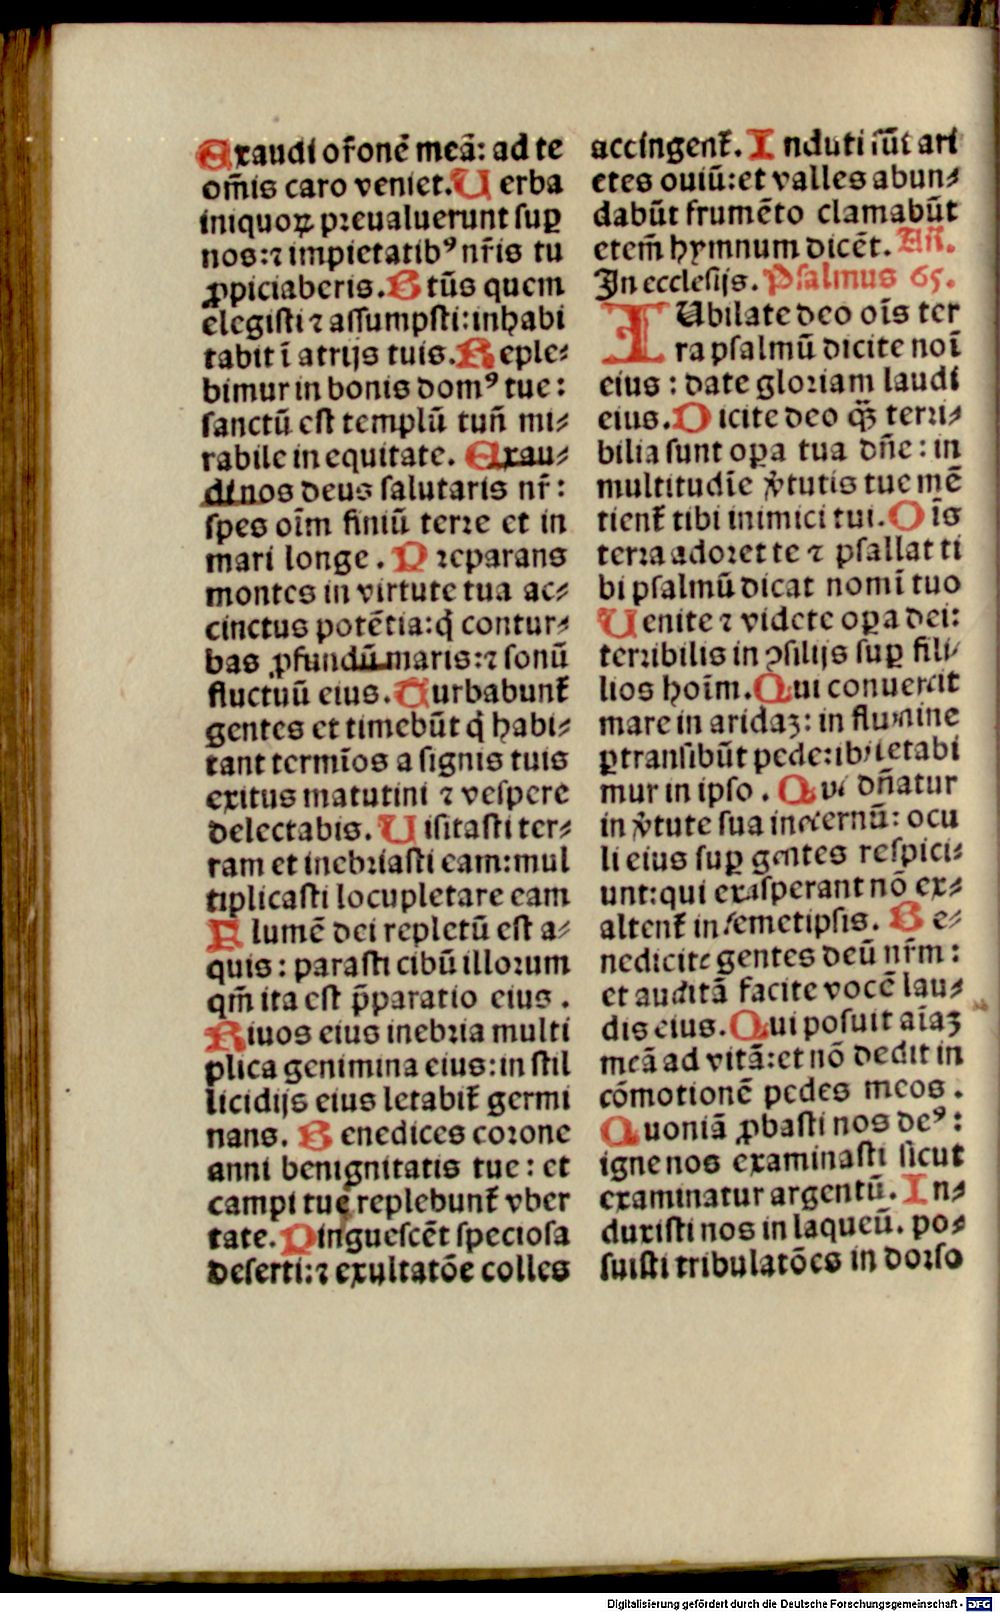 Exaudi or̃onē meā: ad te
om̄is caro veniet. U erba
iniquoꝝ preualuerunt suꝑ
nos: ⁊ impietatibꝰ nr̄is tu
ꝓpiciaberis. B tūs quem
elegisti ⁊ assumpsti: inhabi
tabit ī atrijs tuis. R eple⸗
bimur in bonis domꝰ tue:
sanctū est templū tuū mi⸗
rabile in equitate. Exau⸗
di nos deus salutaris nr̄:
spes oīm finiū terre et in
mari longe. P reparans
montes in virtute tua ac⸗
cinctus potētia: q̄ contur⸗
bas ꝓfundū maris: ⁊ sonū
fluctuū eius. Turbabunt̄
gentes et timebūt q̄ habi⸗
tant termīos a signis tuis
exitus matutini ⁊ vespere
delectabis. U isitasti ter⸗
ram et inebriasti eam: mul
tiplicasti locupletare eam
F lumē dei repletū est a⸗
quis: parasti cibū illorum
qm̄ ita est p̄paratio eius.
Riuos eius inebria multi
plica genimina eius: in stil
licidijs eius letabit̄ germi
nans. B enedices corone
anni benignitatis tue: et
campi tue replebunt̄ vber
tate. Pinguescēt speciosa
deserti: ⁊ exultatōe colles
accingent̄. I nduti sūt ari
etes ouiū: et valles abun⸗
dabūt frumēto clamabūt
etem̄ hymnum dicēt. Añ.
In ecclesijs. Psalmus 65.
IUbilate deo oīs ter
ra psalmū dicite noī
eius: date gloriam laudi
eius. D icite deo q̄ꝫ terri⸗
bilia sunt oꝑa tua dn̄e: in
multitudīe v̓tutis tue mē
tient̄ tibi inimici tui. O īs
terra adoret te ⁊ psallat ti
bi psalmū dicat nomī tuo
Uenite ⁊ videte oꝑa dei:
terribilis in ꝯsilijs suꝑ fili⸗
lios hoīm. Qui conuertit
mare in aridaꝫ: in flumine
ꝑtransibūt pede: ibi letabi
mur in ipso. Q ui dn̄atur
in v̓tute sua in eternū: ocu
li eius suꝑ gentes respici⸗
unt: qui exasperant nō ex⸗
altent̄ in semetipsis. B e⸗
nedicite gentes deū nr̄m:
et auditā facite vocē lau⸗
dis eius. Qui posuit aīaꝫ
meā ad vitā: et nō dedit in
cōmotionē pedes meos.
Quoniā ꝓbasti nos deꝰ:
igne nos examinasti sicut
examinatur argentū. I n⸗
duxisti nos in laqueū. po⸗
suisti tribulatōes in dorso
Digitalisierung gefördert durch die Deutsche Forschungsgemeinschaft - DFG